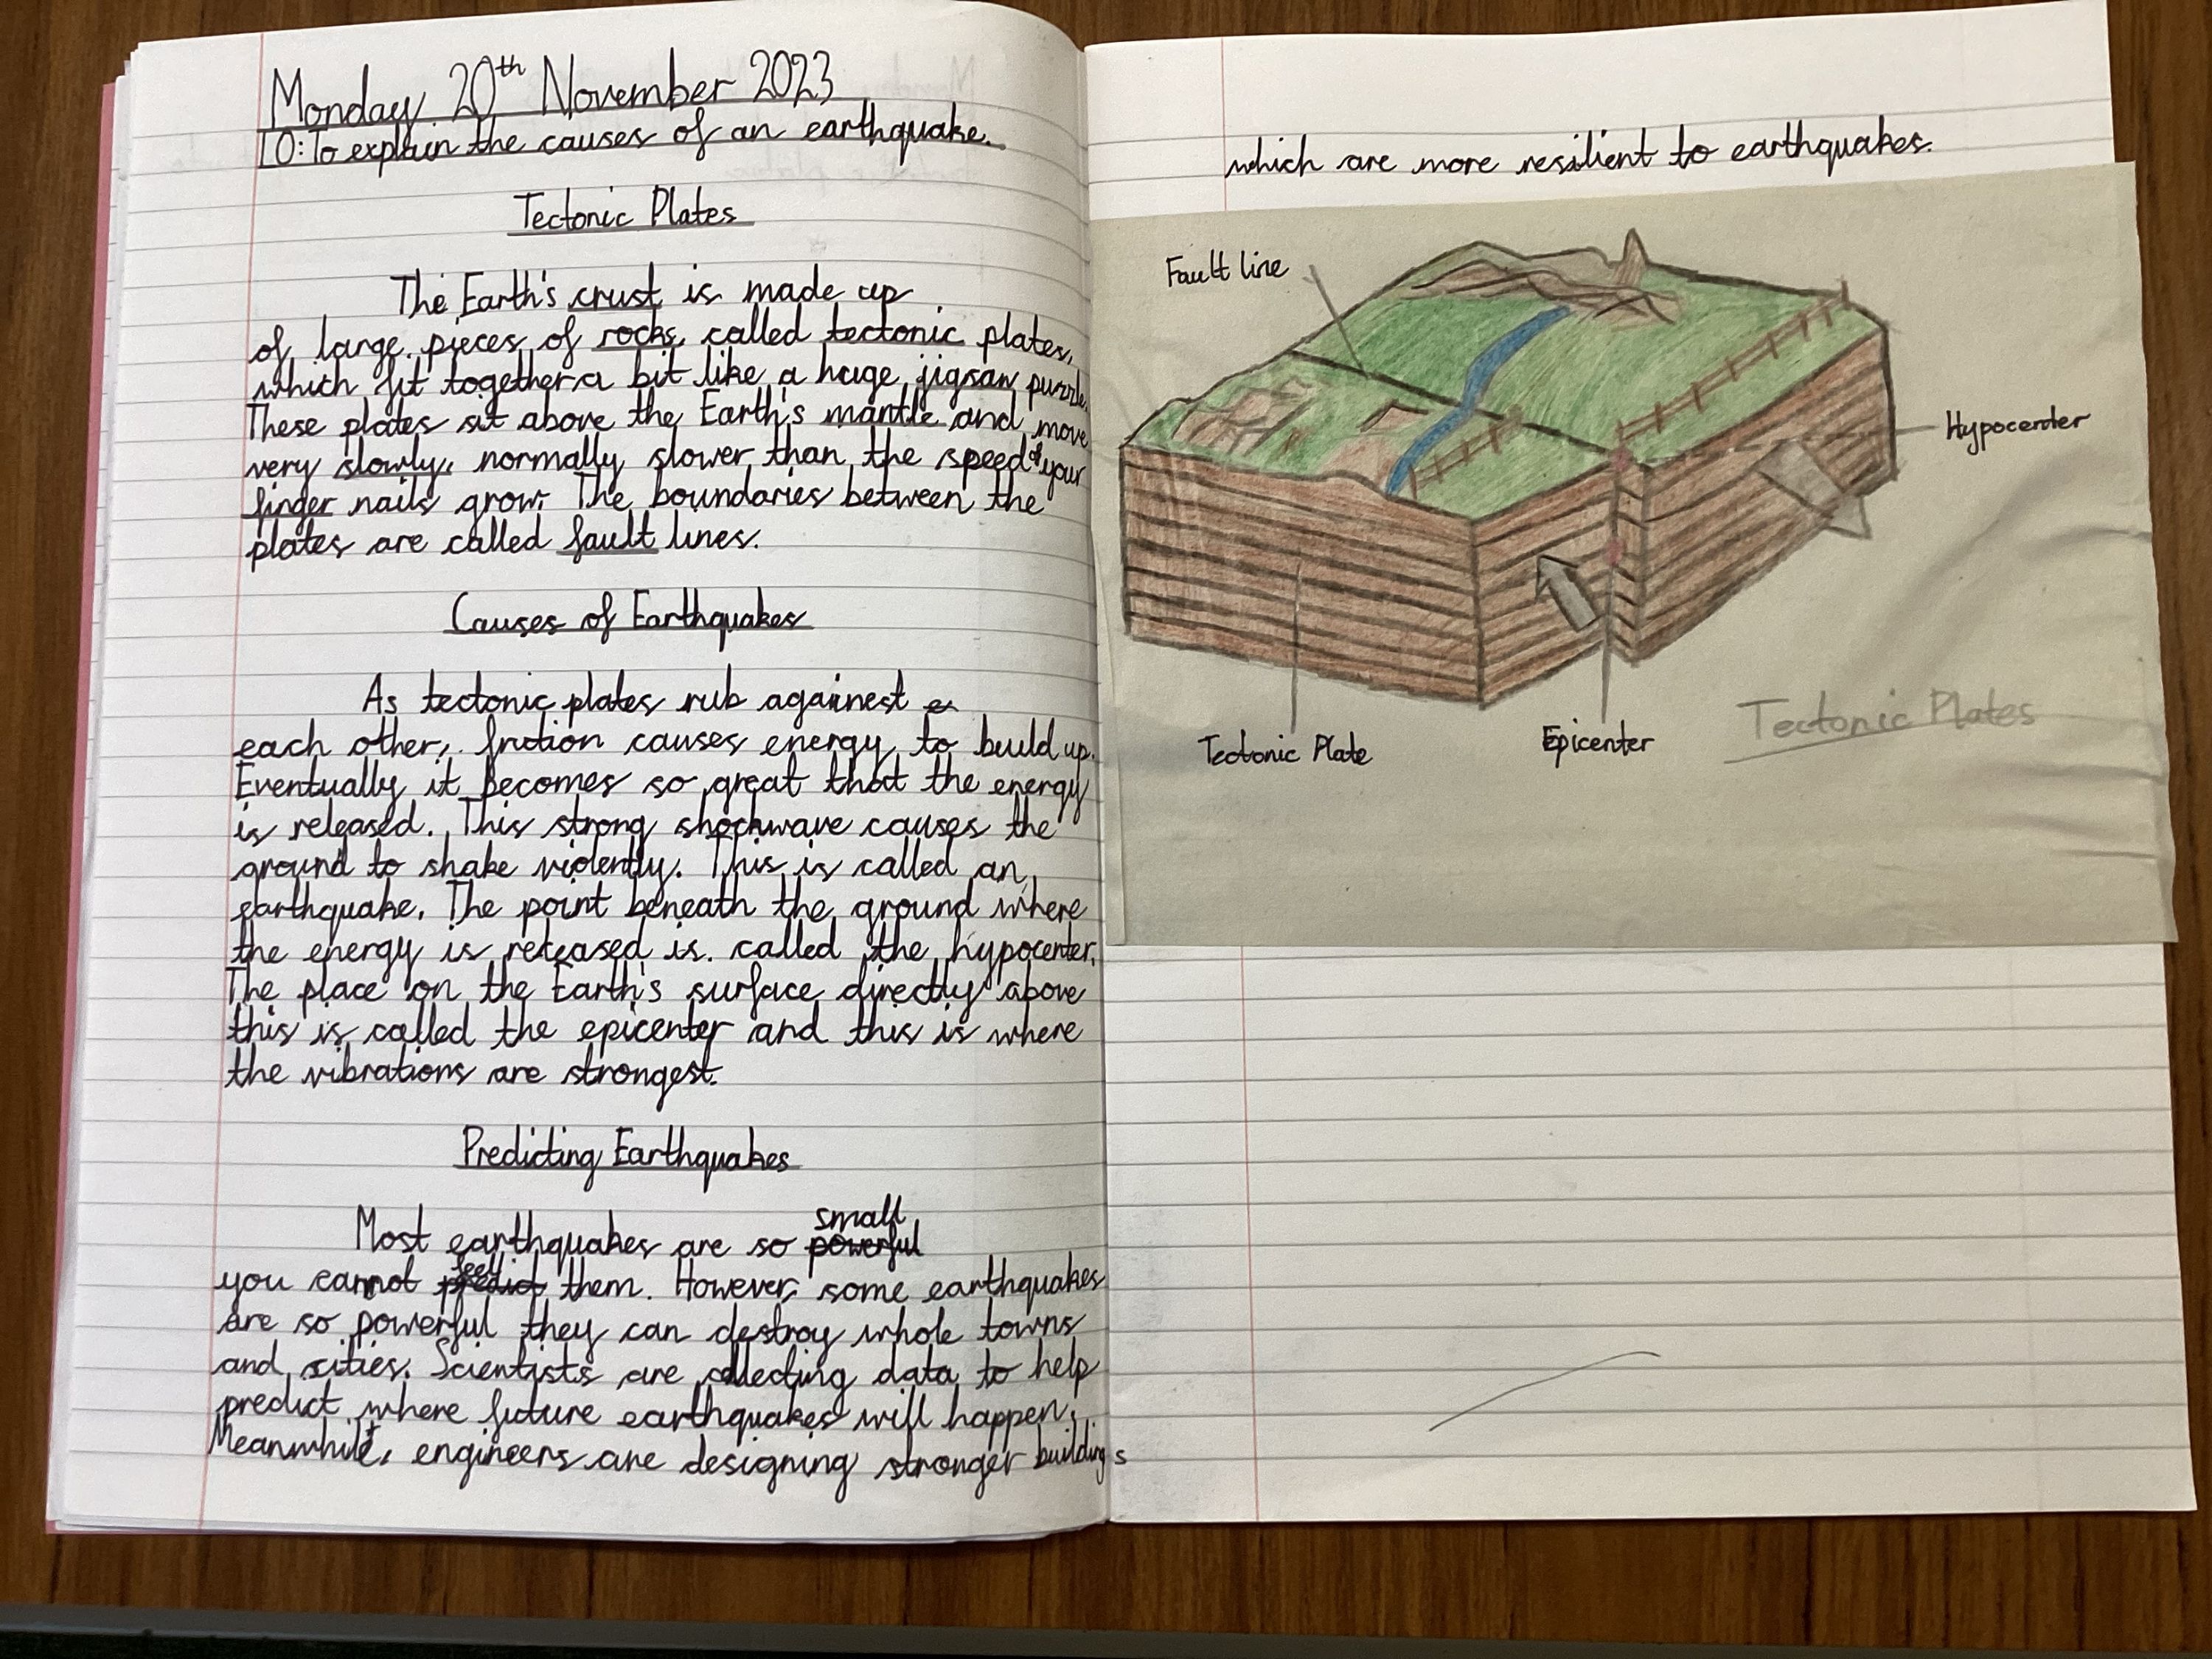 Monday 20th November 2023
LO: To explain the causes of an earthquake.
Tectonic Plates
The Earth's crust is made up
of large pieces of rocks, called tectonic plates,
which fit together a bit like a huge jigsaw puzzle.
These plates sit above the Earth's mantle and move
very slowly, normally slower than the speed of your
finger nails grow. The boundaries between the
plates are called fault lines.
Causes of Earthquakes
As tectonic plates rub againest e
each other, friction causes energy to build up.
Eventually it becomes so great that the energy
is released. This strong shockwave causes the
ground to shake violently. This is called an
earthquake. The point beneath the ground where
the energy is released is called the hypocenter.
The place on the Earth's surface directly above
this is called the epicenter and this is where
the vibrations are strongest.
Predicting Earthquakes
small
Most earthquakes are so powerful
feel
you cannot predict them. However, some earthquakes
are so powerful they can destroy whole towns
and cities. Scientists are collecting data to help
predict where future earthquakes will happen.
Meanwhile, engineers are designing stronger buildings
which are more resilient to earthquakes.
Fault line
Hypocenter
Tectonic Plates
Epicenter
Tectonic Plate